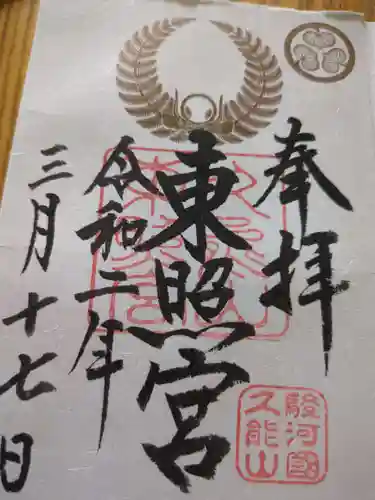 奉拝
駿河國
久能山
東照宮
令和二年
三月十七日